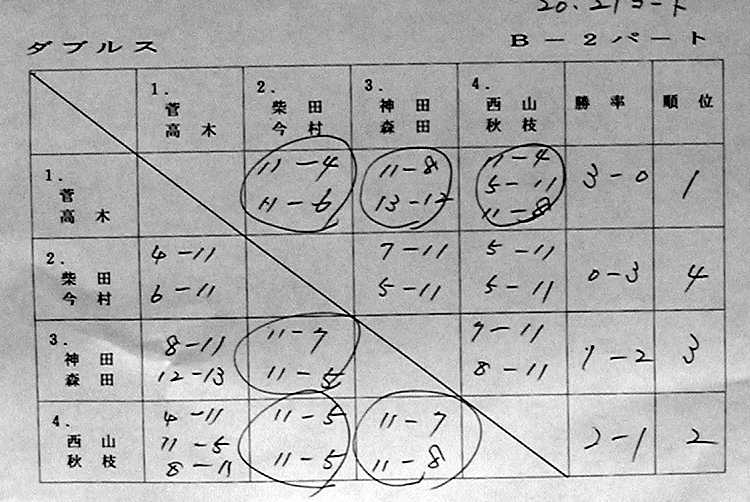 20、21コート
ダブルス B－2パート
1. 菅 高木 2. 柴田 今村 3. 神田 森田 4. 西山 秋枝 勝率 順位
1. 菅 高木 11-4 11-6 11-8 13-12 11-4 5-11 11-8 3-0 1
2. 柴田 今村 4-11 6-11 7-11 5-11 5-11 5-11 0-3 4
3. 神田 森田 8-11 12-13 11-7 11-5 7-11 8-11 1-2 3
4. 西山 秋枝 4-11 11-5 8-11 11-5 11-5 11-7 11-8 2-1 2